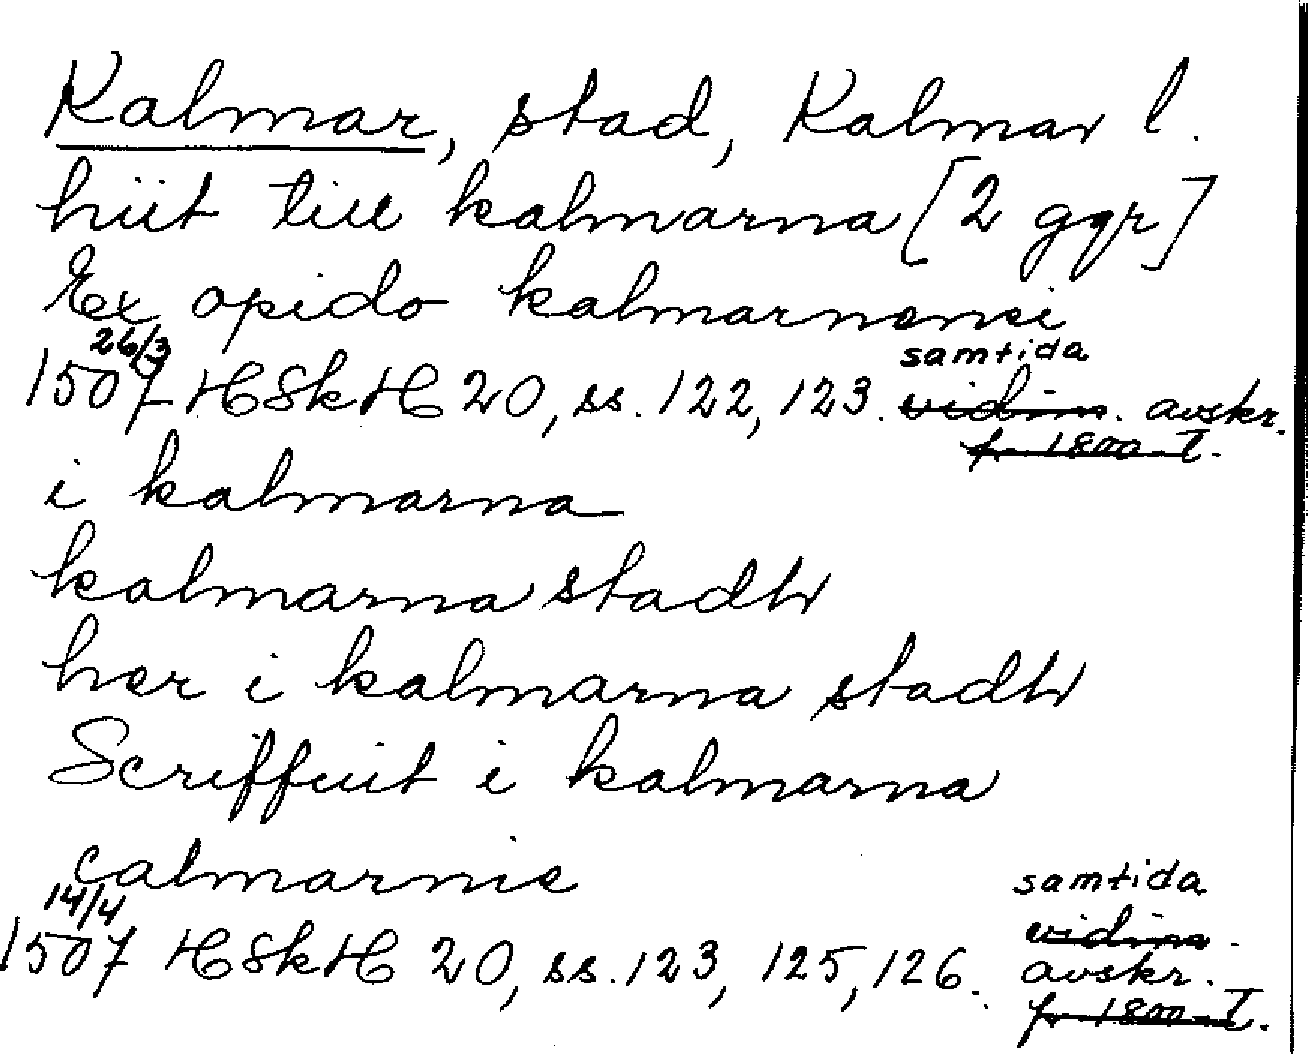 Kalmar, stad, Kalmar l.
hiit till kalmarna [2 ggr]
Ex opido kalmarnensi
26/3 samtida
1507 HSkH 20, ss. 122, 123. vidim. avskr.
fr 1800-t.
i kalmarna
kalmarna stadh
her i kalmarna stadh
Scriffuit i kalmarna
calmarnie
14/4 samtida
vidim.
1507 HSkH 20, ss. 123, 125, 126. avskr.
fr 1800-t.